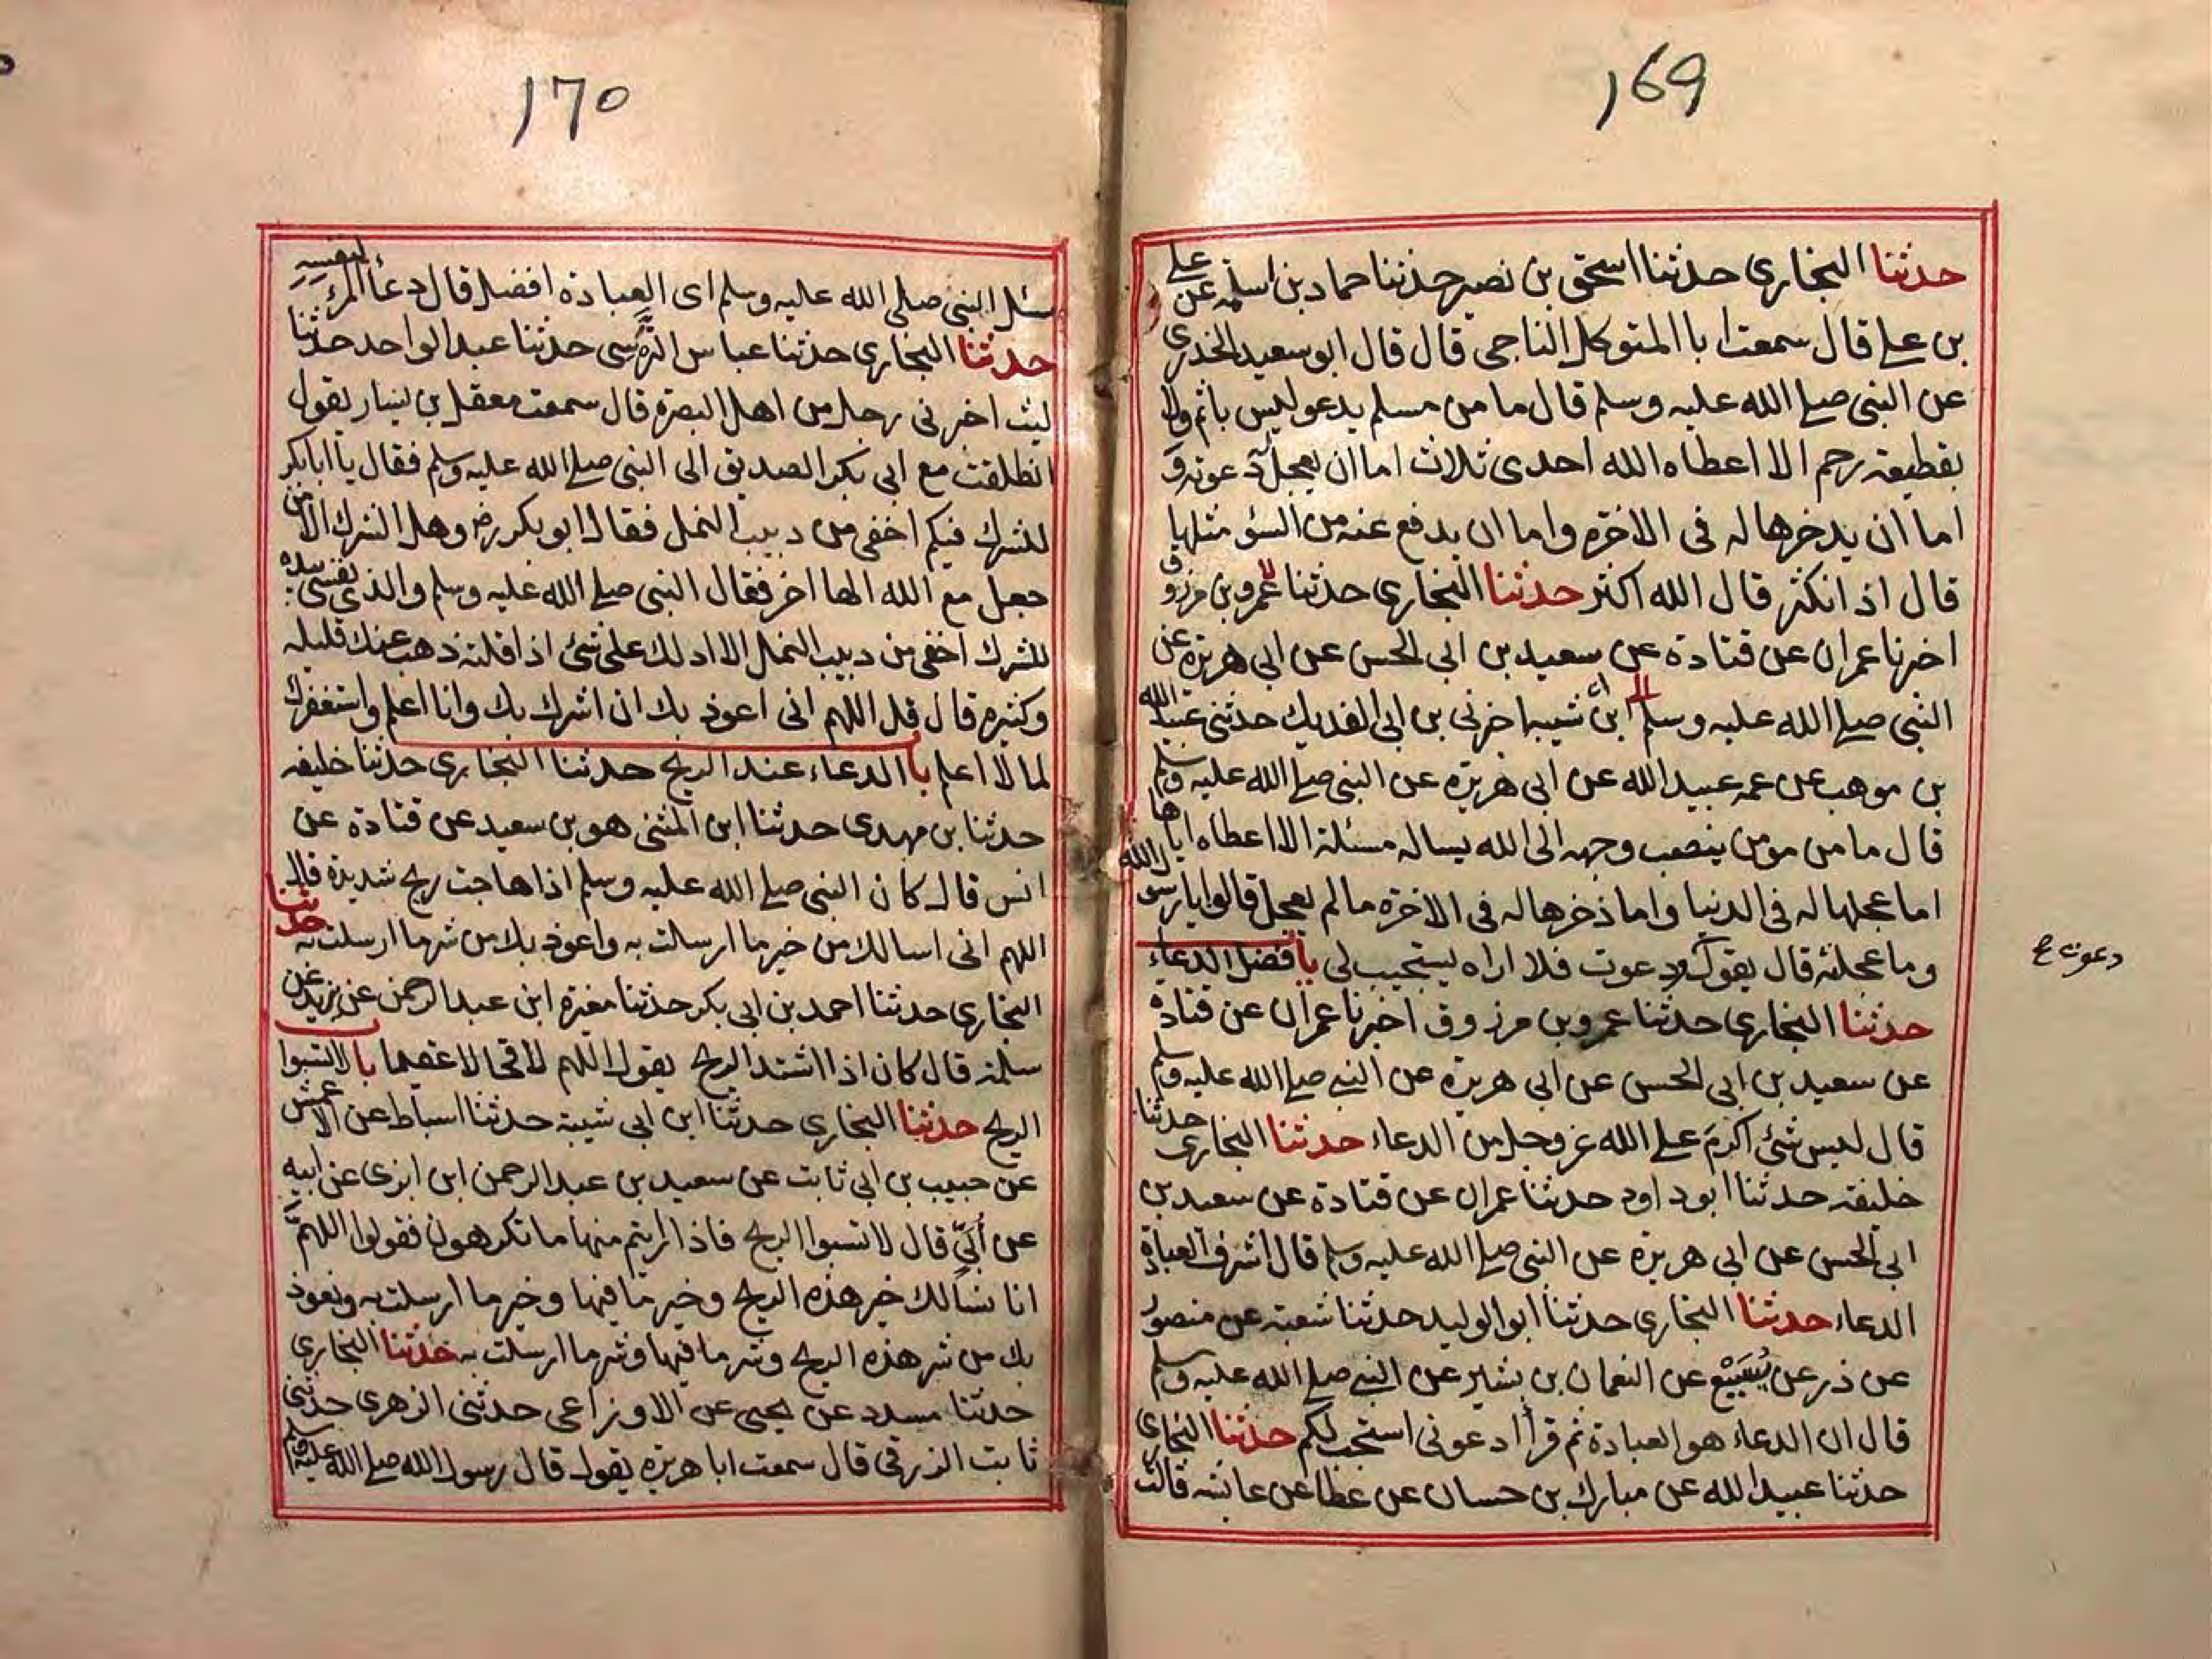 169
حدثنا البخاري حدثنا اسحق بن نصر حدثنا حماد بن اسلمه عن علي
بن علي قال سمعت ابا المتوكل الناجي قال قال ابو سعيد الخدري
عن النبي صلي الله عليه وسلم قال ما من مسلم يدعو ليس باثم ولا
بقطيعة رحم الا اعطاه الله احدى ثلاث اما ان يعجل له دعوته و
اما ان يدخرها له في الاخرة واما ان يدفع عنه من السؤ مثلها
قال اذا نكثر قال الله اكثر حدثنا البخاري حدثنا عمرو بن مرزوق
اخبرنا عمران عن قتادة عن سعيد بن ابي الحسن عن ابي هريرة عن
النبي صلي الله عليه وسلم ابن شيبه اخبرني بن ابي الفديك حدثني عبيد الله
بن موهب عن عمه عبيد الله عن ابي هريرة عن النبي صلي الله عليه وسلم
قال ما من مومن ينصب وجهه الى الله يساله مسئلة الا اعطاه اياها
اما عجلها له في الدنيا واما ذخرها له في الاخرة ما لم يعجل قالوا يا رسول الله
وما عجلته قال يقول دعوت ودعوت فلا اراه يستجيب لي باب فضل الدعاء
حدثنا البخاري حدثنا عمرو بن مرزوق اخبرنا عمران عن قتادة
عن سعيد بن ابي الحسن عن ابي هريرة عن النبي صلي الله عليه وسلم
قال ليس شئ اكرم علي الله عز وجل من الدعاء حدثنا البخاري حدثنا
خليفة حدثنا ابو داود حدثنا عمران عن قتادة عن سعيد بن
ابي الحسن عن ابي هريرة عن النبي صلي الله عليه وسلم قال اشرف العبادة
الدعاء حدثنا البخاري حدثنا ابو الوليد حدثنا شعبة عن منصور
عن ذر عن يسيع عن النعمان بن بشير عن النبي صلي الله عليه وسلم
قال ان الدعاء هو العبادة ثم قرأ ادعوني استجب لكم حدثنا البخاري
حدثنا عبيد الله عن مبارك بن حسان عن عطا عن عائشه قالت
دعوت ع
170
سئل النبي صلى الله عليه وسلم اى العبادة افضل قال دعاُ المرء لنفسه
حدثنا البخاري حدثنا عباس النرسى حدثنا عبد الواحد حدثنا
ليث اخبرني رجل من اهل البصرة قال سمعت معقل بن يسار يقول
انطلقت مع ابي بكر الصديق الى النبي صلي الله عليه وسلم فقال يا ابا بكر
للشرك فيكم اخفى من دبيب النمل فقال ابو بكر رض وهل الشرك الا من
جعل مع الله الها اخر فقال النبي صلي الله عليه وسلم والذي نفسي بيده
للشرك اخفى من دبيب النمل الا ادلك على شئ اذا قلته ذهب عنك قليله
وكثيره قال قل اللهم اني اعوذ بك ان اشرك بك وانا اعلم واستغفرك
لما لا اعلم با الدعاء عند الريح حدثنا البخاري حدثنا خليفه
حدثنا بن مهدي حدثنا ابن المثنى هو بن سعيد عن قتادة عن
انس قال كان النبي صلي الله عليه وسلم اذا هاجت ريح شديدة قال
اللهم اني اسالك من خير ما ارسلت به واعوذ بك من شر ما ارسلت به حدثنا
البخاري حدثنا احمد بن ابي بكر حدثنا مغيرة ابن عبد الرحمن عن يزيد عن
سلمة قال كان اذا اشتد الريح يقول اللهم لاقحا لا عقيما باب لا تسبوا
الريح حدثنا البخاري حدثنا ابن ابي شيبة حدثنا اسباط عن الاعمش
عن حبيب بن ابي ثابت عن سعيد بن عبد الرحمن ابن ابزى عن ابيه
عن أُبَيٍّ قال لا تسبوا الريح فاذا رايتم منها ما تكرهون فقولوا اللهم
انا نسألك خير هذه الريح وخير ما فيها وخير ما ارسلت به ونعوذ
بك من شر هذه الريح وشر ما فيها وشر ما ارسلت به حدثنا البخاري
حدثنا مسدد عن يحيى عن الاوزاعي حدثني الزهري حدثني
ثابت الزرقي قال سمعت ابا هريرة يقول قال رسول الله صلي الله عليه وسلم